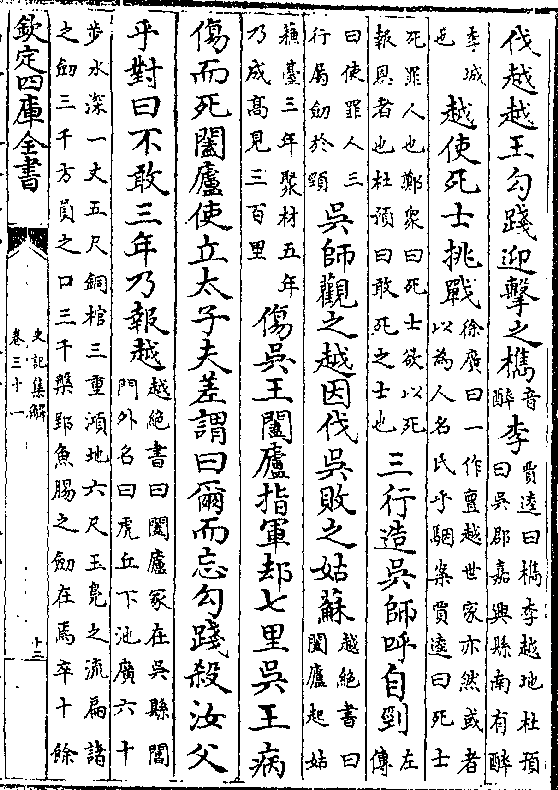 伐越越王勾踐迎擊之檇音醉李賈逵曰檇李越地杜預曰吳郡嘉興縣南有醉
李城也越使死士挑戰徐廣曰一作亶越世家亦然或者以為人名氏乎駰案賈逵曰死士
死罪人也鄭衆曰死士欲以死報恩者也杜預曰敢死之士也三行造吳師呼自剄左傳
曰使罪人三行屬劒於頸吳師觀之越因伐吳敗之姑蘇越絶書曰闔廬起姑
蘇臺三年聚材五年乃成髙見三百里傷吳王闔廬指軍却七里吳王病
傷而死闔廬使立太子夫差謂曰爾而忘勾踐殺汝父
乎對曰不敢三年乃報越越絶書曰闔廬冢在吳縣閶門外名曰虎丘下池廣六十
步水深一丈五尺銅棺三重澒地六尺玉鳬之流扁諸之劒三千方員之口三千槃郢魚腸之劒在焉卒十餘
欽定四庫全書
史記集解
卷三十一
十三